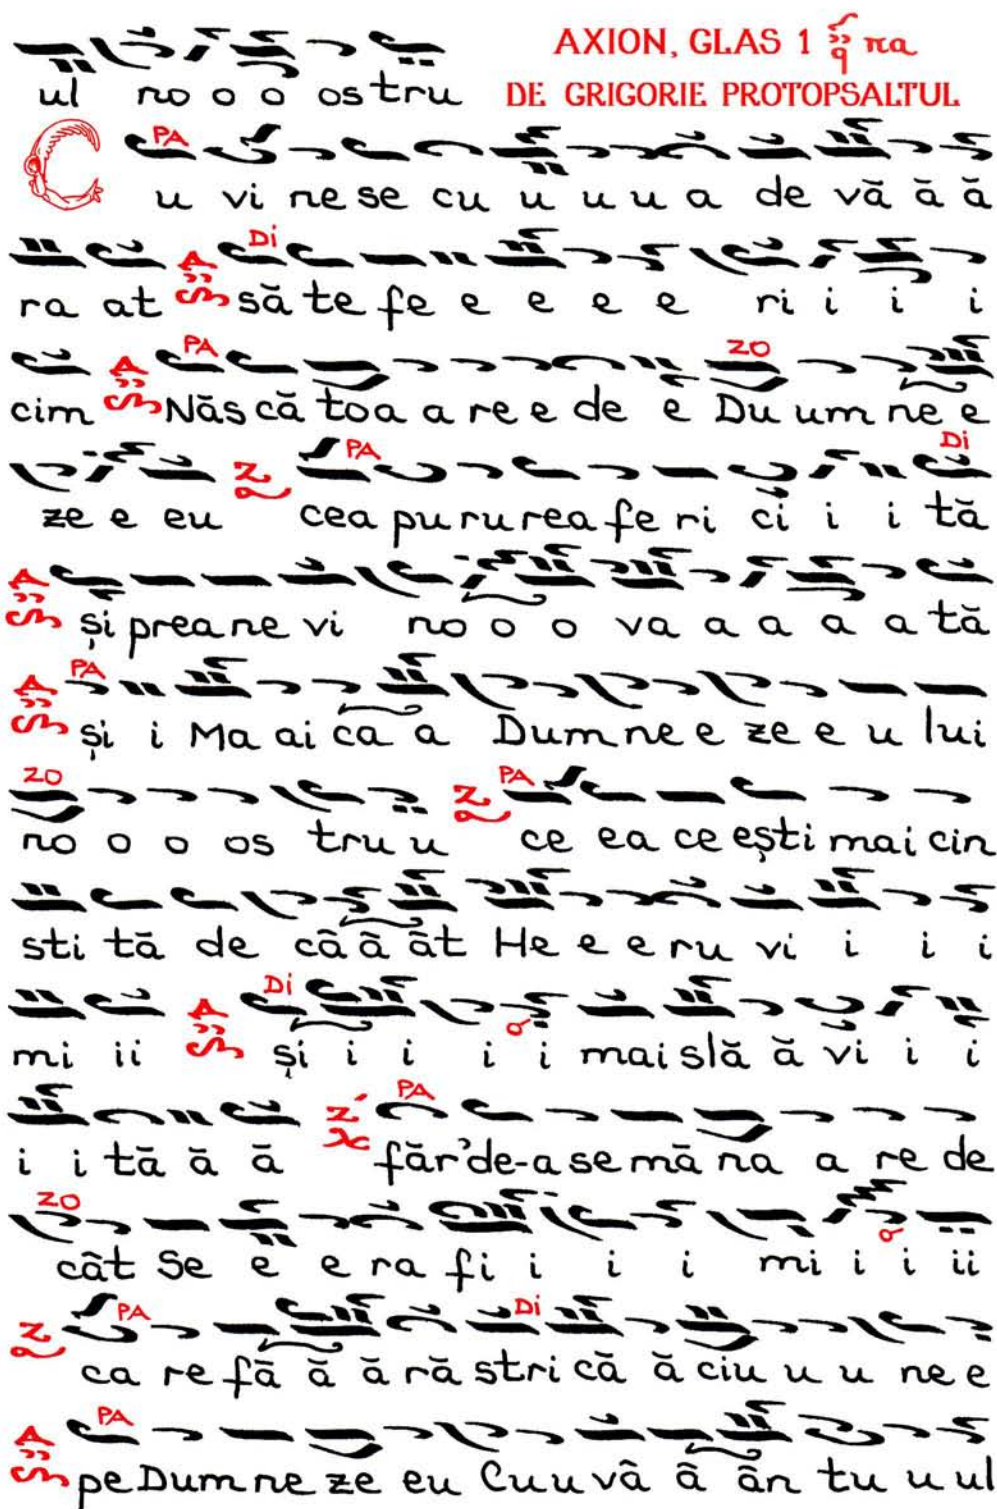 AXION, GLAS 1 πα
ul no o o os tru DE GRIGORIE PROTOPSALTUL
PA
Cu vi ne se cu u u u a de vă ă ă
Di
ra at să te fe e e e e ri i i i
PA ZO
cim Năs că toa a re e de e Du um ne e
PA Di
ze e eu cea pu ru rea fe ri ci i i tă
și prea ne vi no o o va a a a a tă
PA
și i Ma ai ca a Dum ne e ze e u lui
ZO PA
no o o os tru u ce ea ce ești mai cin
sti tă de câ â ât He e e ru vi i i i
Di
mi ii și i i i i mai slă ă vi i i
PA
i i tă ă ă făr'de-a se mă na a re de
ZO
cât Se e e ra fi i i i mi i i ii
PA Di
ca re fă ă ă ră stri că ă ciu u u ne e
PA
pe Dum ne ze eu Cu u vâ â ân tu u ul